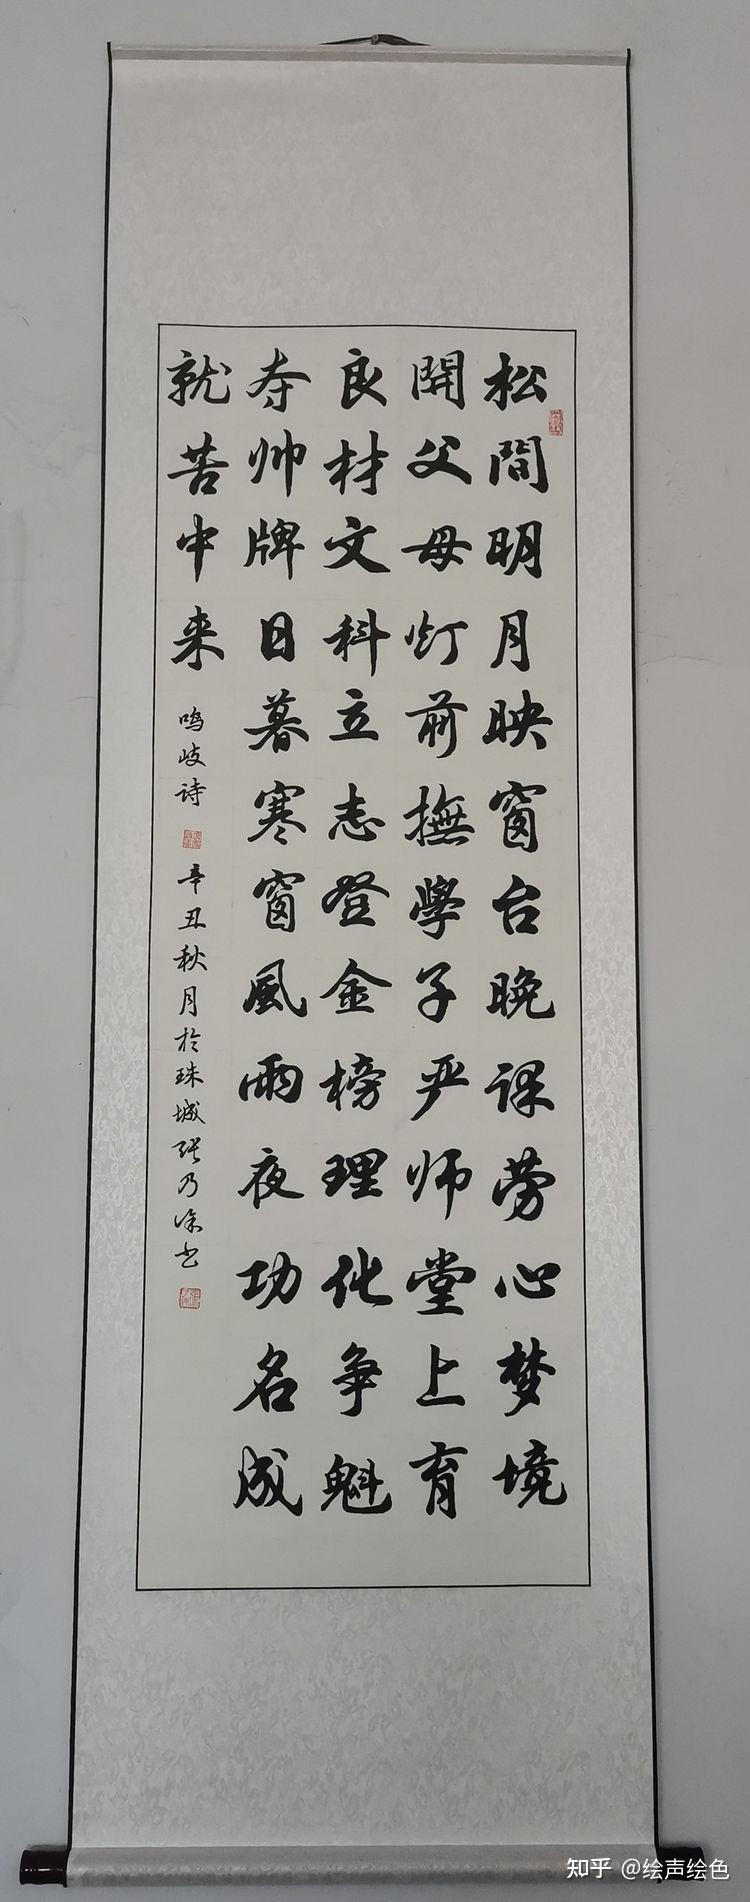 松間明月映窗台晚课劳心梦境
開父母灯前撫學子严师堂上育
良材文科立志登金榜理化争魁
夺帅牌日暮寒窗風雨夜功名成
就苦中来
鸣岐诗
辛丑秋月於珠城张乃涂书
知乎 @绘声绘色